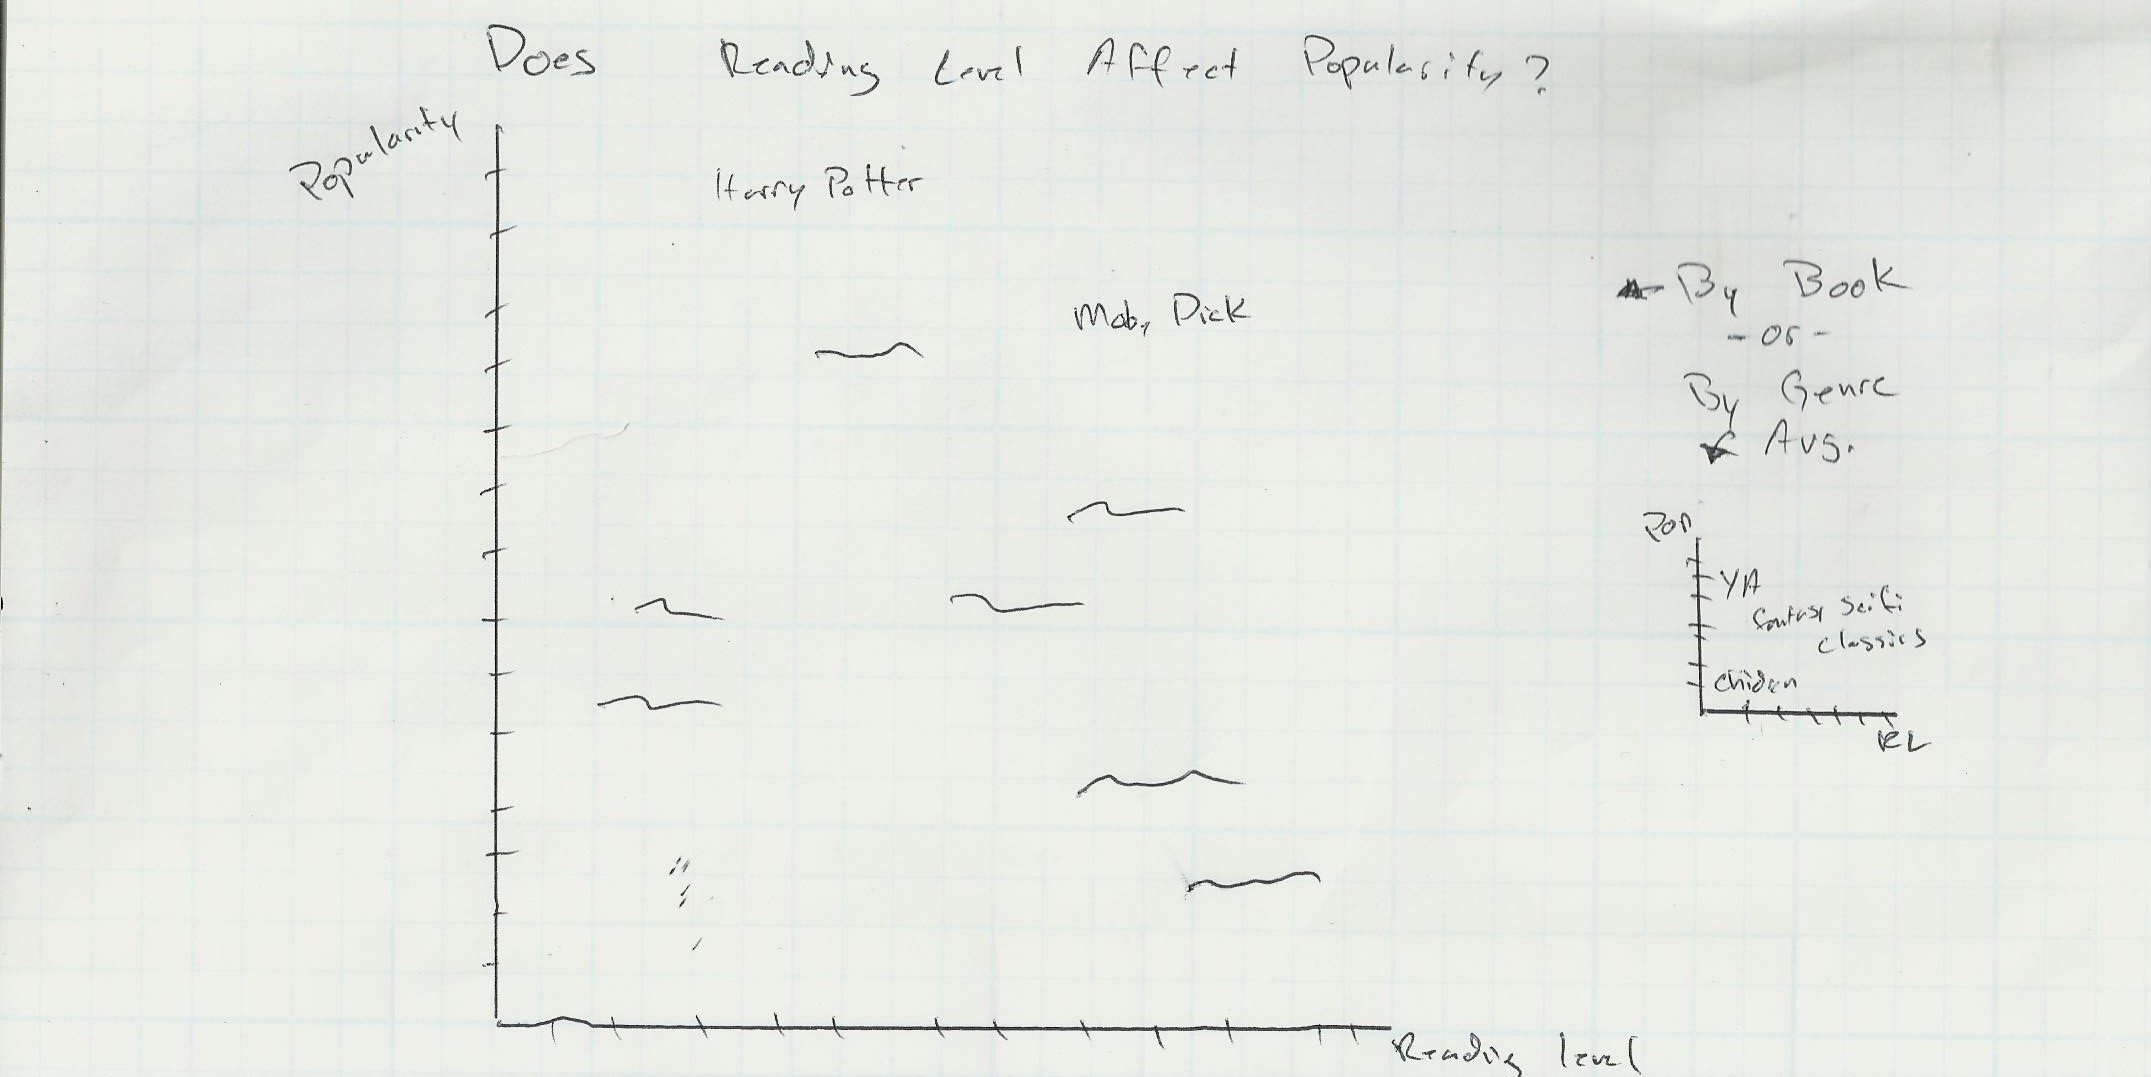 Does Reading Level Affect Popularity?
Popularity
Harry Potter
Moby Dick
By Book
- or -
By Genre
Avg.
Pop
YA
fantasy Scifi
classics
Chiden
RL
Reading level